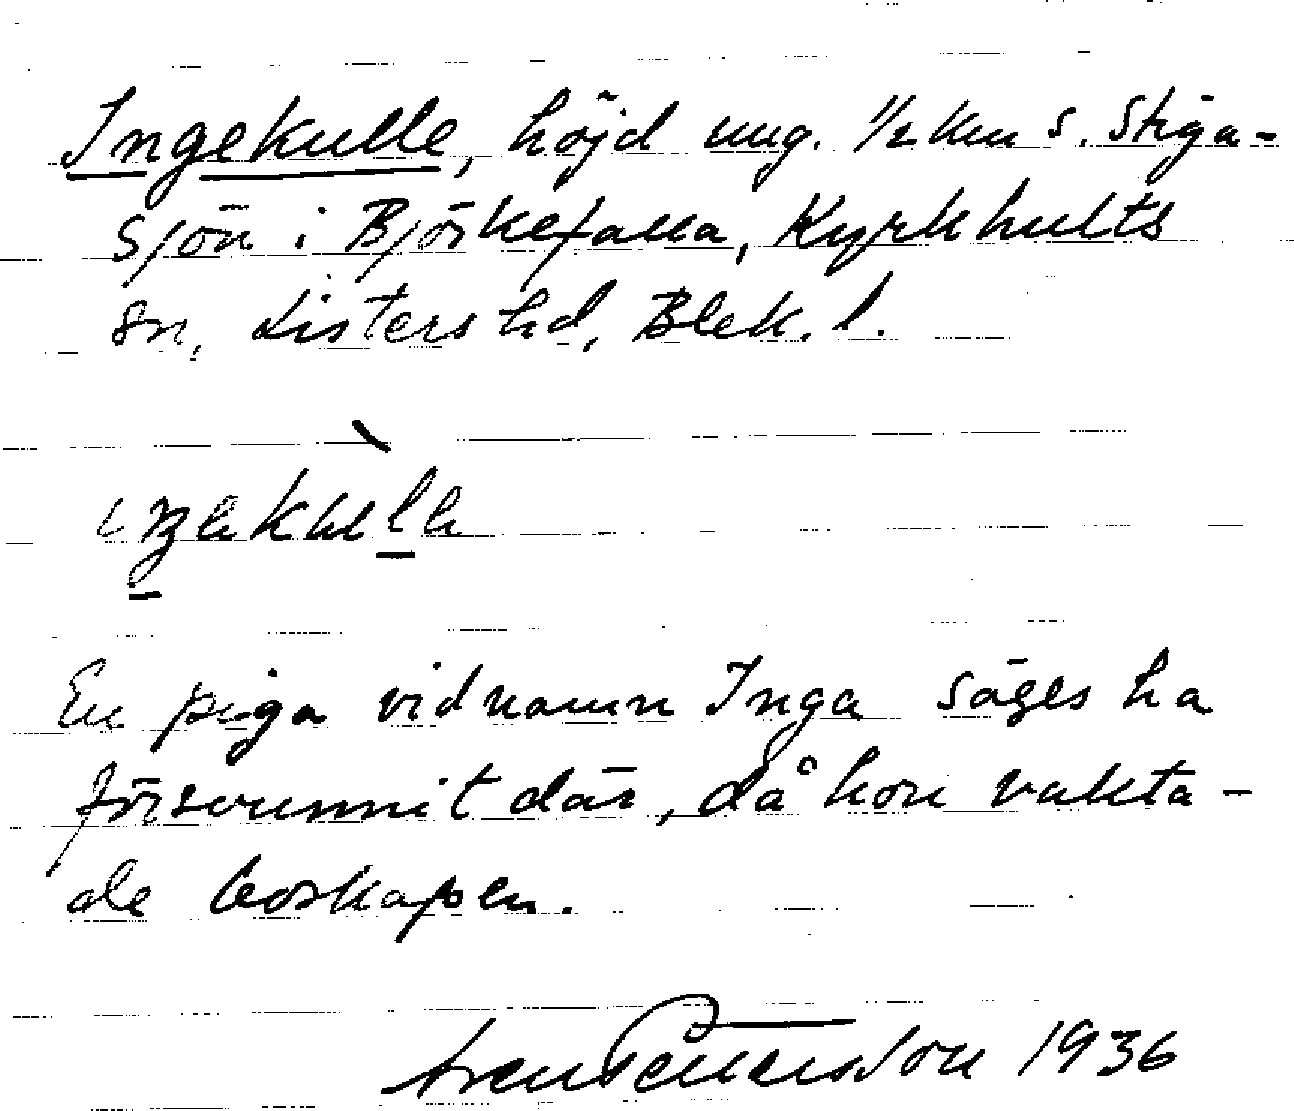 Ingekulle, höjd ung. 1/2 km s. Stiga-
sjön i Björkefalla, Kyrkhults
sn, Listers hd, Blek. l.
En piga vid namn Inga säges ha
försvunnit där, då hon vakta-
de boskapen.
1936